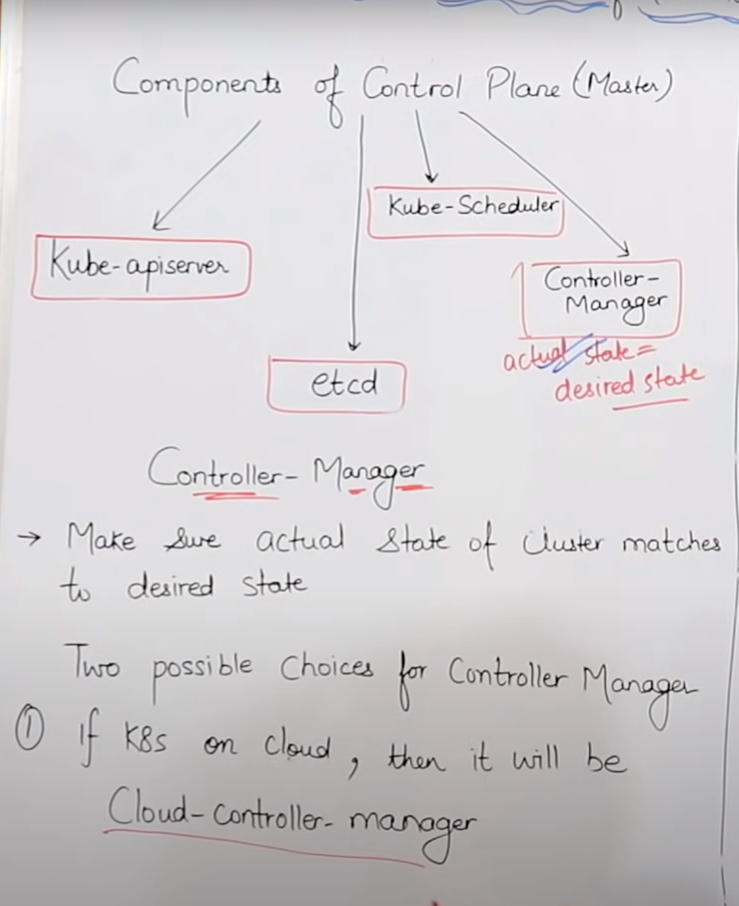 Components of Control Plane (Master)
Kube-Scheduler
Kube-apiserver
Controller-
Manager
actual state =
desired state
etcd
Controller-Manager
→ Make sure actual state of cluster matches
to desired state
Two possible choices for Controller Manager
① if K8s on cloud, then it will be
Cloud-controller-manager